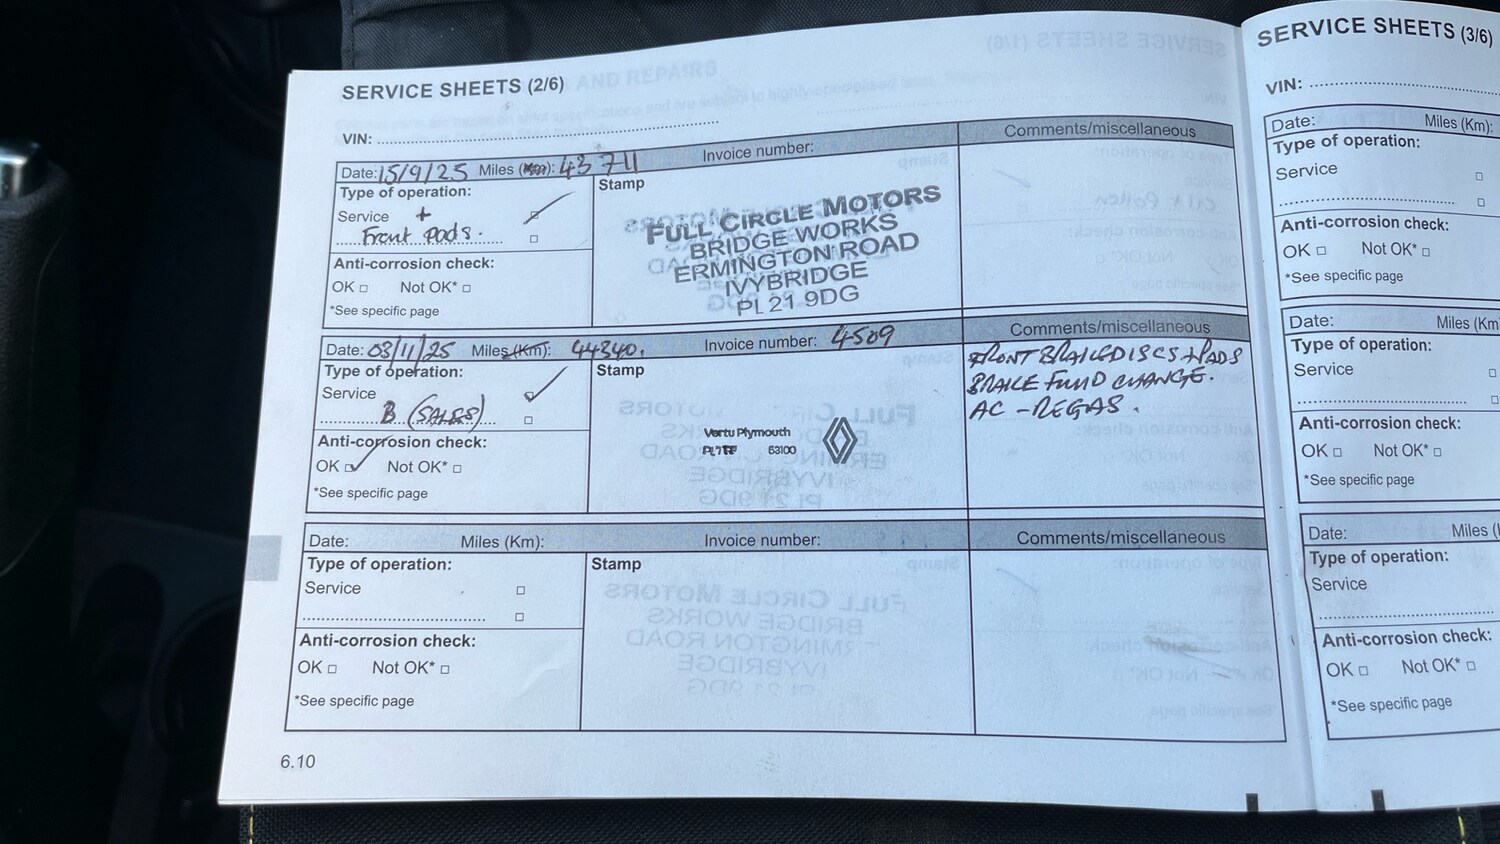 SERVICE SHEETS (2/6)
VIN:
Date: 15/9/25 Miles (Km): 43 711 Invoice number:
Comments/miscellaneous
Type of operation:
Service +
Front pads.
Anti-corrosion check:
OK Not OK*
*See specific page
Stamp
FULL CIRCLE MOTORS
BRIDGE WORKS
ERMINGTON ROAD
IVYBRIDGE
PL21 9DG
Date: 03/11/25 Miles (Km): 44340. Invoice number: 4509
Comments/miscellaneous
Type of operation:
Service
B (SALES)
Anti-corrosion check:
OK Not OK*
*See specific page
Stamp
Vertu Plymouth
53100
FRONT BRAKE DISCS + PADS
BRAKE FLUID CHANGE.
AC - REGAS.
Date: Miles (Km): Invoice number:
Comments/miscellaneous
Type of operation:
Service
Anti-corrosion check:
OK Not OK*
*See specific page
Stamp
6.10
SERVICE SHEETS (3/6)
VIN:
Date: Miles (Km):
Type of operation:
Service
Anti-corrosion check:
OK Not OK*
*See specific page
Date: Miles (Km
Type of operation:
Service
Anti-corrosion check:
OK Not OK*
*See specific page
Date: Miles (
Type of operation:
Service
Anti-corrosion check:
OK Not OK*
*See specific page